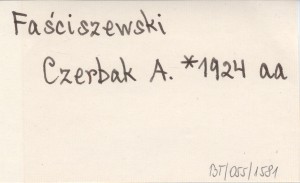 Faściszewski
Czerbak A. *1924 aa
BT/055/1581